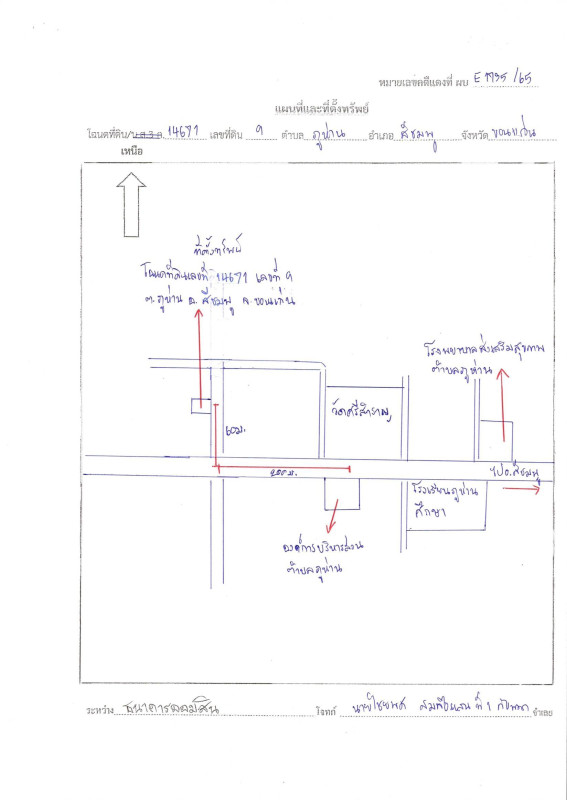 หมายเลขคดีแดงที่ ผบ E1735/65
แผนที่และที่ตั้งทรัพย์
โฉนดที่ดิน/น.ส.3 ก. 14671 เลขที่ดิน 9 ตำบล ภูห่าน อำเภอ สีชมพู จังหวัด ขอนแก่น
เหนือ
ที่ตั้งทรัพย์
โฉนดที่ดินเลขที่ 14671 เลขที่ 9
ต.ภูห่าน อ.สีชมพู จ.ขอนแก่น
โรงพยาบาลส่งเสริมสุขภาพ
ตำบลภูห่าน
วัดศรีสำราญ
60ม.
200 ม.
ไปอ.สีชมพู
โรงเรียนภูห่าน
ศึกษา
องค์การบริหารส่วน
ตำบลภูห่าน
ระหว่าง ธนาคารออมสิน โจทก์ นายไชยพศ ที่ 1 กับพวก จำเลย